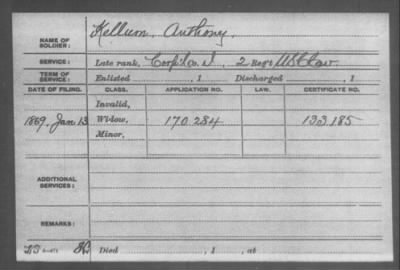 NAME OF SOLDIER: Kellum, Anthony,
SERVICE: Late rank, Corpl Co. I, 2 Reg't US Cav
TERM OF SERVICE: Enlisted , 1 Discharged , 1
DATE OF FILING. CLASS. APPLICATION NO. LAW. CERTIFICATE NO.
Invalid,
1869, Jan 13 Widow, 170.284 133,185
Minor,
ADDITIONAL SERVICES:
REMARKS:
Died , 1 , at